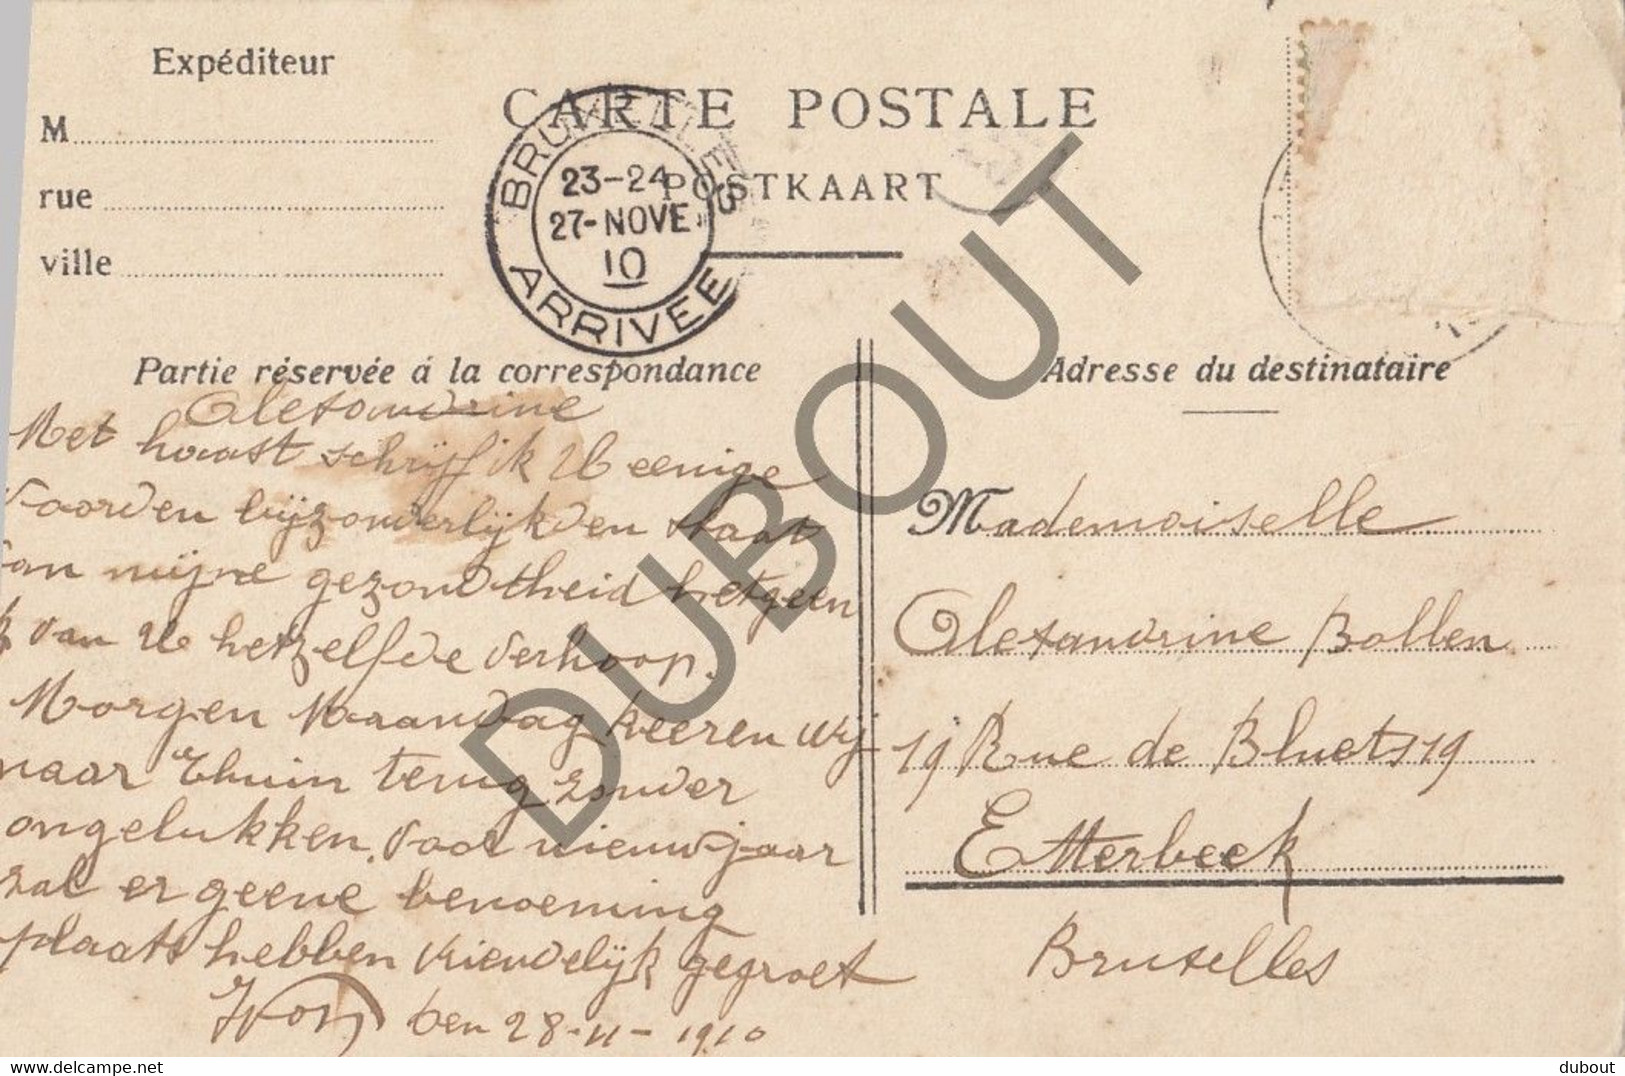 Expéditeur
M
rue
ville
CARTE POSTALE
POSTKAART
BRUXELLES
23-24
27-NOVE
10
ARRIVEE
Partie réservée á la correspondance
Alexandrine
Met haast schrijf ik U eenige
woorden bijzonderlijk den staat
van mijne gezondtheid hetgeen
ik van U hetzelfde verhoop.
Morgen Maandag keeren wij
naar Thuin terug zonder
ongelukken. voor nieuwjaar
zal er geene benoeming
plaats hebben vriendelijk gegroet
den 28-11-1910
Adresse du destinataire
Mademoiselle
Alexandrine Bollen
19 Rue de Bluets 19
Etterbeek
Bruxelles
DUBOUT
www.delcampe.net
dubout